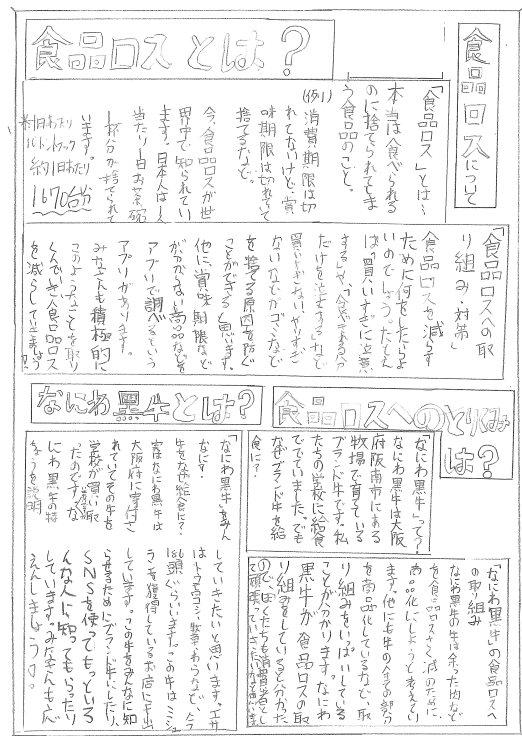 食品ロスについて
食品ロスとは？
「食品ロス」とは…
本当は食べられる
のに捨てられてしま
う食品のこと。
(例り)
消費期限は切
れてないけど、賞
味期限は切れてい
て捨てるなど。
今、食品ロスが世
界中で知られてい
ます。日本人は一人
当たり一日お茶碗
一杯分が捨てられて
います。
約1日あたり
1670台分
「食品ロスへの取
り組み・対策」
食品ロスを減らす
ために何をしたらよ
いのでしょう。たとえ
ば「買いすぎに注意
を捨てる原因を防ぐ
ことができると思います。
他に、賞味期限など
アプリで調べるという
アプリがあります。
みなさんも積極的に
このようなことを取り
くんでいき食品ロス
を減らしていきましょう
食品ロスへのとりくみ
は？
「なにわ黒牛」って？
なにわ黒牛は大阪
府阪南市にある
牧場で育てている
ブランド牛です。私
たちの学校に給食
ででていました。でも
なぜブランド牛を給
食に？
「なにわ黒牛」の食品ロスへ
の取り組み
なにわ黒牛の牛は余った肉など
を食品ロスがなく減のために、
商品化にしようと考えてい
ます。他にも牛の全ての部分
を商品化しているなど、取
り組みをいっぱいしている
ことが分かります。なにわ
黒牛が食品ロスの取
り組みをしていると分かった
なにわ黒牛とは？
牛をなぜ給食に？
なに？
実はなにわ黒牛は
大阪府に寄付さ
れていてその牛を
学校が買い取
ったのです。
にわ黒牛の特
ちょうを説明
していきたいと思います。エサ
はトウモロコシ、
186頭ぐらいいます。この牛はミシュ
ランを獲得しているお店にも出
しています。この牛をみんなに知
らせるためにブランド牛にしたり、
SNSを使ってもっといろ
んな人に知ってもらったり
しています。みなさんも応
えんしましょう。